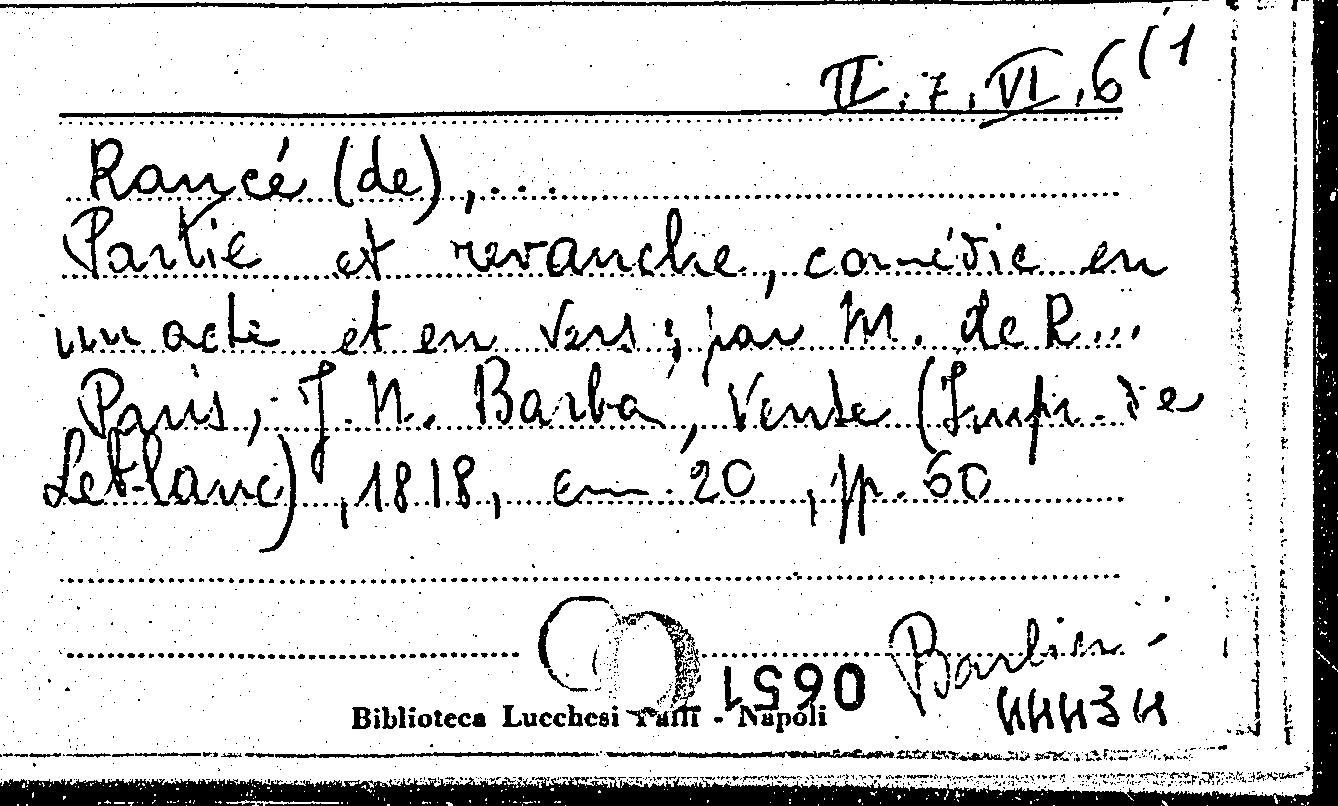 II.7.VI.6(1
Rancé (de),...
Partie et revanche, comédie en
un acte et en vers; par M. de R...
Paris, J.N. Barba, Vente (Impr. de
Leblanc), 1818, cm. 20, pp. 60
0651
Barbier -
Biblioteca Lucchesi Palli - Napoli